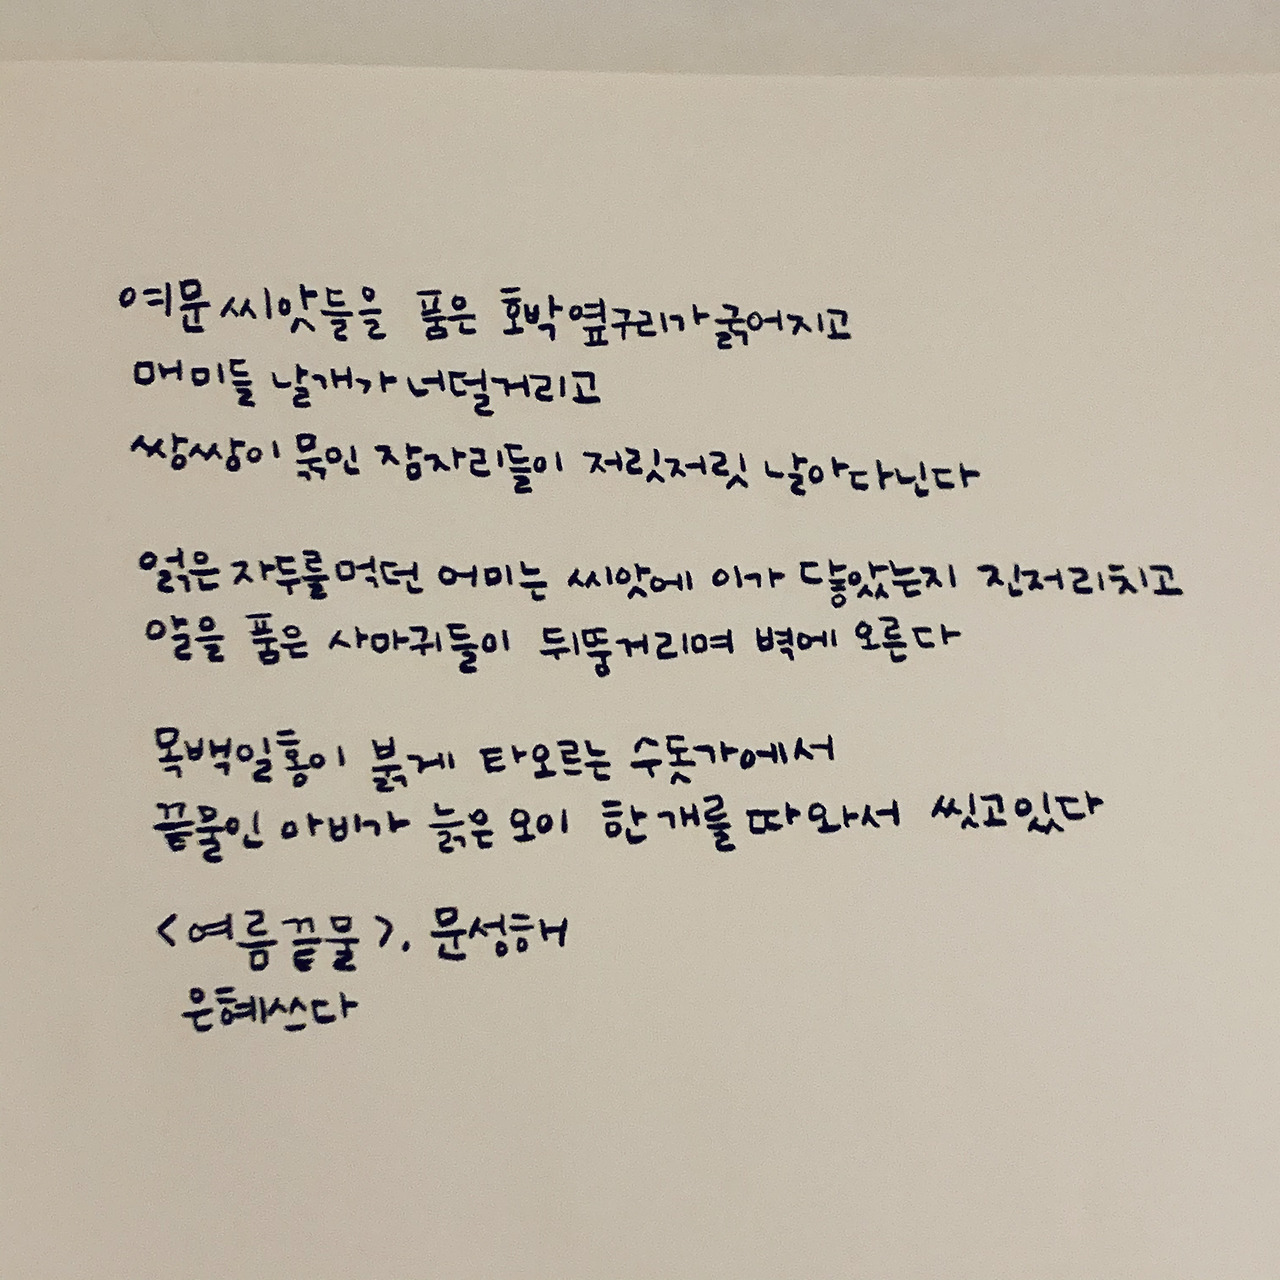 여문 씨앗들을 품은 호박 옆구리가 굵어지고
매미들 날개가 너덜거리고
쌍쌍이 묶인 잠자리들이 저릿저릿 날아다닌다
얽은 자두를 먹던 어미는 씨앗에 이가 닿았는지 진저리치고
알을 품은 사마귀들이 뒤뚱거리며 벽에 오른다
목백일홍이 붉게 타오르는 수돗가에서
끝물인 아비가 늙은 오이 한 개를 따와서 씻고있다
<여름끝물>. 문성해
은혜쓰다